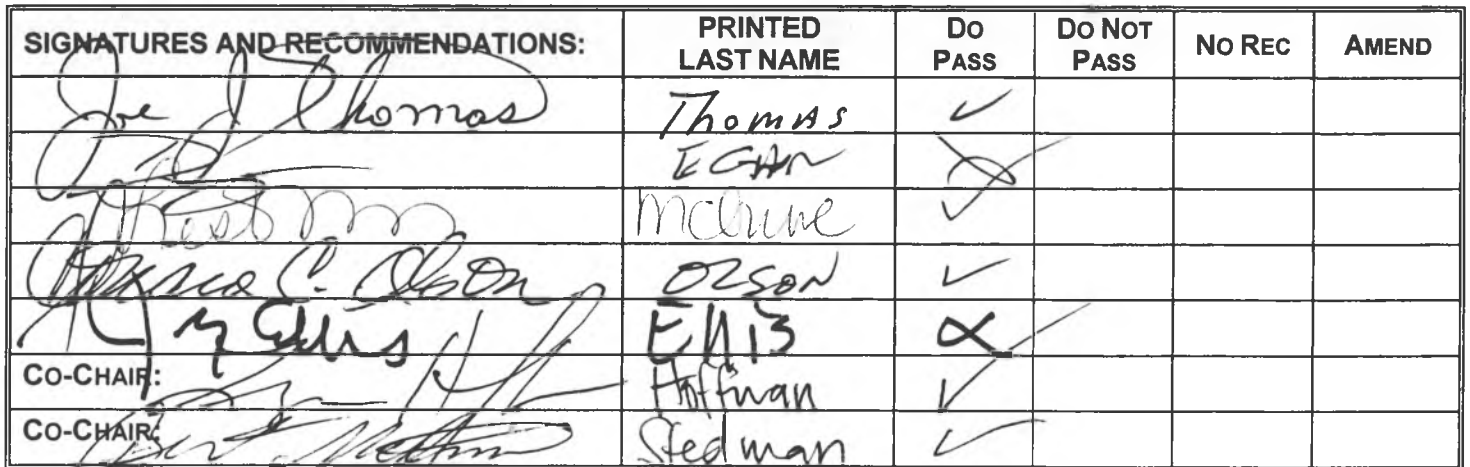 SIGNATURES AND RECOMMENDATIONS: PRINTED LAST NAME DO PASS DO NOT PASS NO REC AMEND
Joe J Thomas Thomas ✓
EGAN
McGuire ✓
C. Olson OLSON ✓
Ellis Ellis
CO-CHAIR: Hoffman ✓
CO-CHAIR: Bert Stedman Stedman ✓